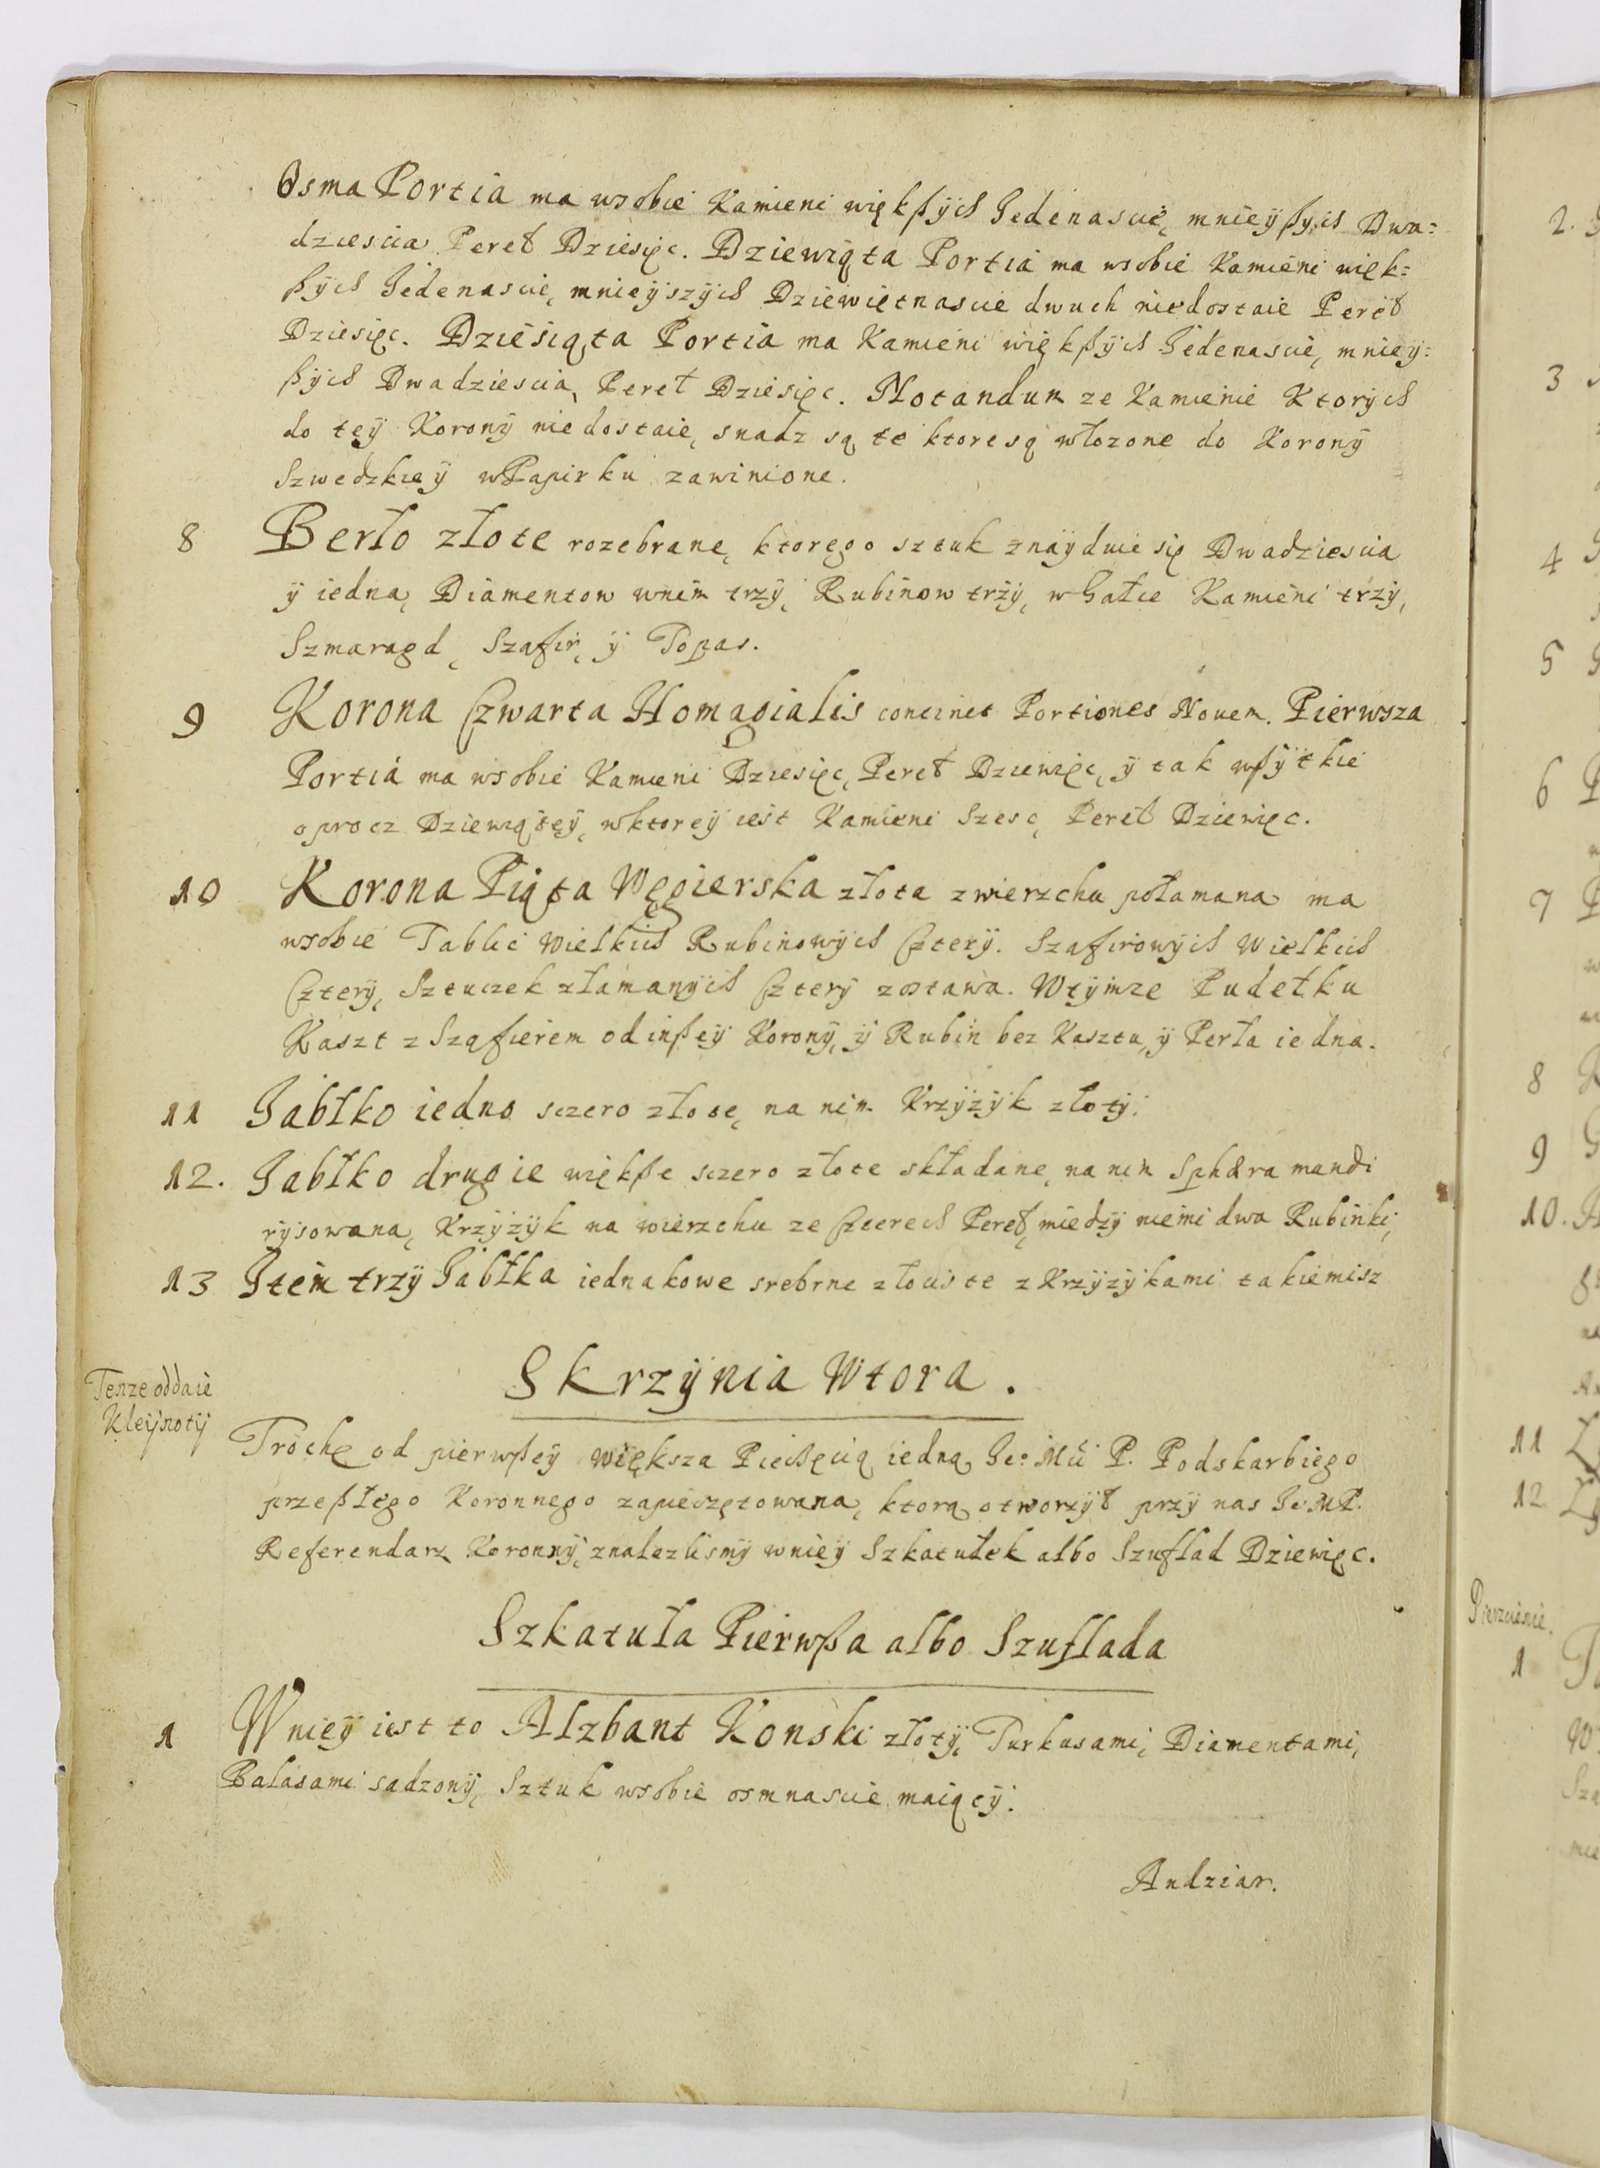 Osma Portia ma wsobie Kamieni więkßÿch Jedenascie, mnieyßÿch Dwa=
dziescia Pereł Dziesięc. Dziewiąta Portia ma wsobie Kamieni więk=
ßÿch Jedenascie, mnieÿszÿch Dziewiętnascie dwuch niedostaie Pereł
Dziesięc. Dziesiąta Portia ma Kamieni więkßÿch Jedenascie, mnieÿ=
ßÿch Dwadziescia, Pereł Dziesięc. Notandum ze Kamienie Ktorÿch
do teÿ Koronÿ niedostaie, snadz są te ktore są włozone do Koronÿ
Szwedzkieÿ wPapirku zawinione.
8 Berło złote rozebrane, ktorego sztuk znaÿduie się Dwadziescia
ÿ iedna, Diamentow wnim trzÿ, Rubinow trzÿ, w Gałce Kamieni trzÿ,
Szmaragd, Szafir, ÿ Topas.
9 Korona Czwarta Homagialis continet Portiones Nouem. Pierwsza
Portia ma wsobie Kamieni Dziesięc, Pereł Dziewięc, ÿ tak wßÿtkie
oprocz Dziewiąteÿ, wktoreÿ iest Kamieni Szesc, Pereł Dziewięc.
10 Korona Piąta Węgierska złota zwierzchu połamana ma
wsobie Tablic Wielkich Rubinowÿch Czterÿ. Szafirowÿch Wielkich
Czterÿ, Sztuczek złamanÿch Czterÿ zostawa. Wtÿmze Pudełku
Kaszt z Szafierem od inßeÿ Koronÿ, ÿ Rubin bez Kasztu, ÿ Perła iedna.
11 Jabłko iedno sczero złote, na nim Krzÿzÿk złotÿ.
12. Jabłko drugie więkße sczero złote składane, na nim Sphæra mundi
rÿsowana, Krzÿzÿk na wierzchu ze Czterech Pereł, miedzÿ niemi dwa Rubinki,
13 Item trzÿ Jabłka iednakowe srebrne złociste z Krzÿzÿkami takiemisz
Skrzÿnia Wtora.
Tenze oddaie
Kleÿnotÿ
Trochę od pierwßeÿ większa Pieczęcią iedną Je° Mci P. Podskarbiego
przeßłego Koronnego zapieczętowana, ktorą otworzÿł przÿ nas Je MP.
Referendarz Koronnÿ, znalezlismÿ wnieÿ Szkatułek albo Szuflad Dziewięc.
Szkatuła Pierwßa albo Szuflada
1 Wnieÿ iest to Alzbant Konski złotÿ, Turkusami, Diamentami,
Balasami sadzonÿ, Sztuk wsobie osmnascie maiącÿ.
Andziar.
2.
3
4
5
6
7
8
9
10.
11
12
Pierscienie.
1